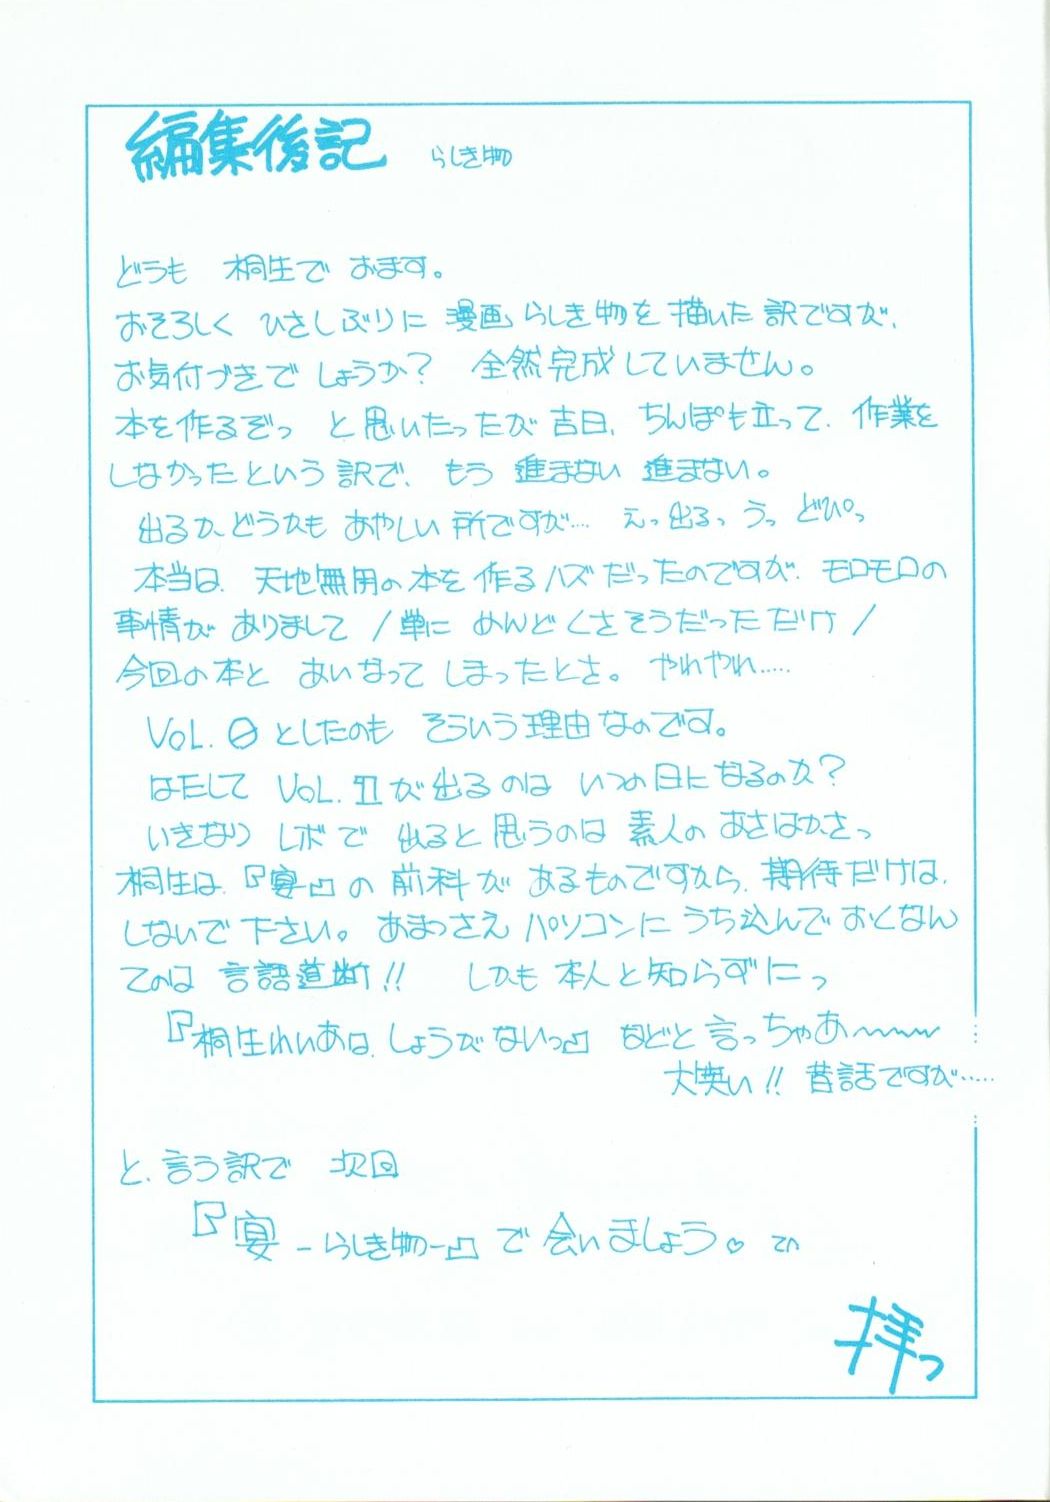 編集後記 らしき物
どうも 桐生で おます。
おそろしく ひさしぶりに 漫画らしき物を描いた訳ですが、
お気付づきでしょうか? 全然完成していません。
本を作るぞっ と思いたったが吉日、ちんぽも立って、作業を
しなかったという訳で、もう 進まない 進まない。
出るか、どうかも あやしい所ですが… えっ出るっ うっ どぴっ
本当は、天地無用の本を作るハズだったのですが、モロモロの
事情が ありまして/単に めんどくさそうだっただけ/
今回の本と あいなって しまったとさ。 やれやれ……
VOL.0としたのも そういう理由なのです。
はたして VOL.Ⅱが出るのは いつの日になるのか?
いきなり レボで 出ると思うのは 素人の あさはかさっ
桐生は、『宴』の前科が あるものですから、期待だけは、
しないで下さい。あまっさえ パソコンに うち込んで おくなん
てのは 言語道断!! しかも 本人と知らずにっ
『桐生れいあは、しょうがないっ』などと言っちゃあ〜〜〜
大笑い!! 昔話ですが……
と、言う訳で 次回
『宴 -らしき物-』で会いましょう。♡
拝っ